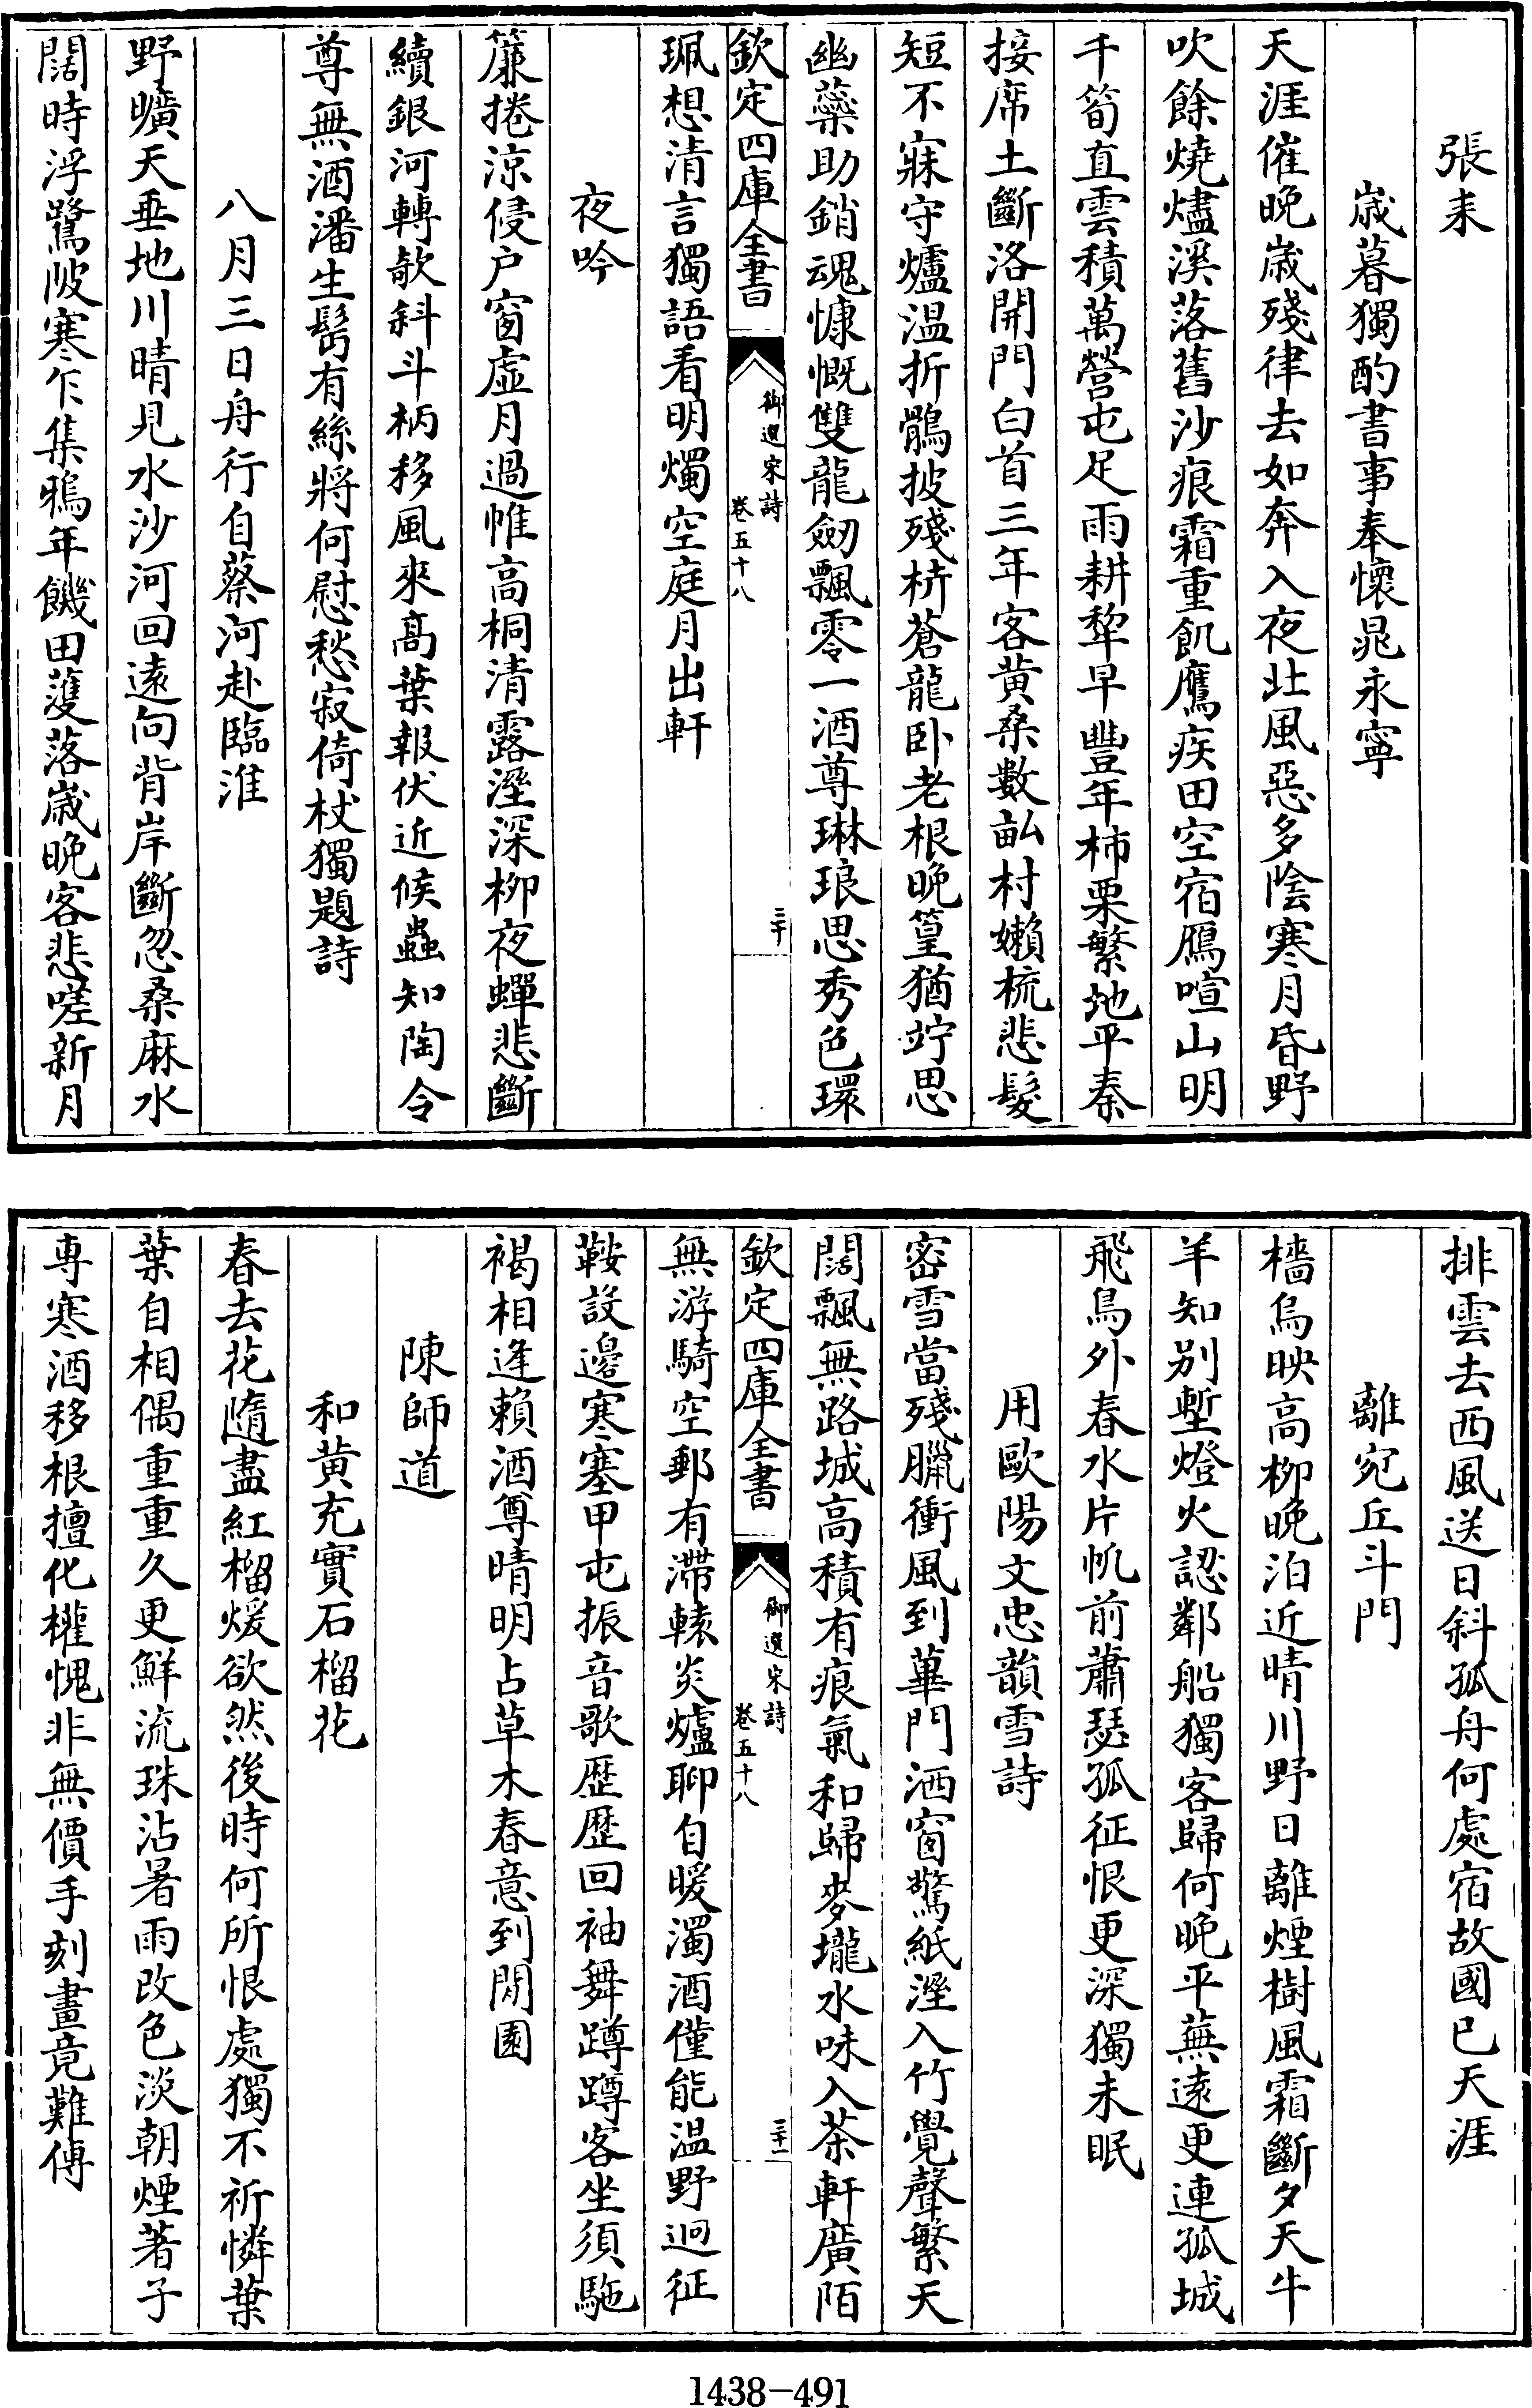 張耒
歳暮獨酌書事奉懷晁永寧
天涯催晚歳殘律去如奔入夜北風惡多陰寒月昏野
吹餘燒燼溪落舊沙痕霜重飢鷹疾田空宿鴈喧山明
千筍直雲積萬營屯足雨耕犂早豐年柿栗繁地平秦
接席土斷洛開門白首三年客黄桑數畝村嬾梳悲髮
短不寐守爐温折鶻披殘枿蒼龍卧老根晚篁猶竚思
幽藥助銷魂慷慨雙龍劒飄零一酒尊琳琅思秀色環
欽定四庫全書
御選宋詩
卷五十八
三十
珮想清言獨語看明燭空庭月出軒
夜吟
簾捲涼侵户窗虚月過帷高桐清露溼深柳夜蟬悲斷
續銀河轉欹斜斗柄移風來髙葉報伏近候蟲知陶令
尊無酒潘生髩有絲將何慰愁寂倚杖獨題詩
八月三日舟行自蔡河赴臨淮
野曠天垂地川晴見水沙河回遠向背岸斷忽桑麻水
闊時浮鷺陂寒乍集鴉年饑田䕶落歳晚客悲嗟新月
排雲去西風送日斜孤舟何處宿故國已天涯
離宛丘斗門
檣烏映高柳晚泊近晴川野日離煙樹風霜斷夕天牛
羊知别塹燈火認鄰船獨客歸何晚平蕪遠更連孤城
飛鳥外春水片帆前蕭瑟孤征恨更深獨未眠
用歐陽文忠韻雪詩
密雪當殘臘衝風到蓽門洒窗驚紙溼入竹覺聲繁天
闊飄無路城高積有痕氣和歸麥壠水味入茶軒廣陌
欽定四庫全書
御選宋詩
卷五十八
三十一
無游騎空郵有滯轅炎爐聊自暖濁酒僅能温野迥征
鞍設邊寒塞甲屯振音歌歴歴回袖舞蹲蹲客坐須駞
褐相逢賴酒尊晴明占草木春意到閒園
陳師道
和黄充實石榴花
春去花隨盡紅榴煖欲然後時何所恨處獨不祈憐葉
葉自相偶重重久更鮮流珠沾暑雨改色淡朝煙著子
専寒酒移根擅化權愧非無價手刻畫竟難傳
1438-491